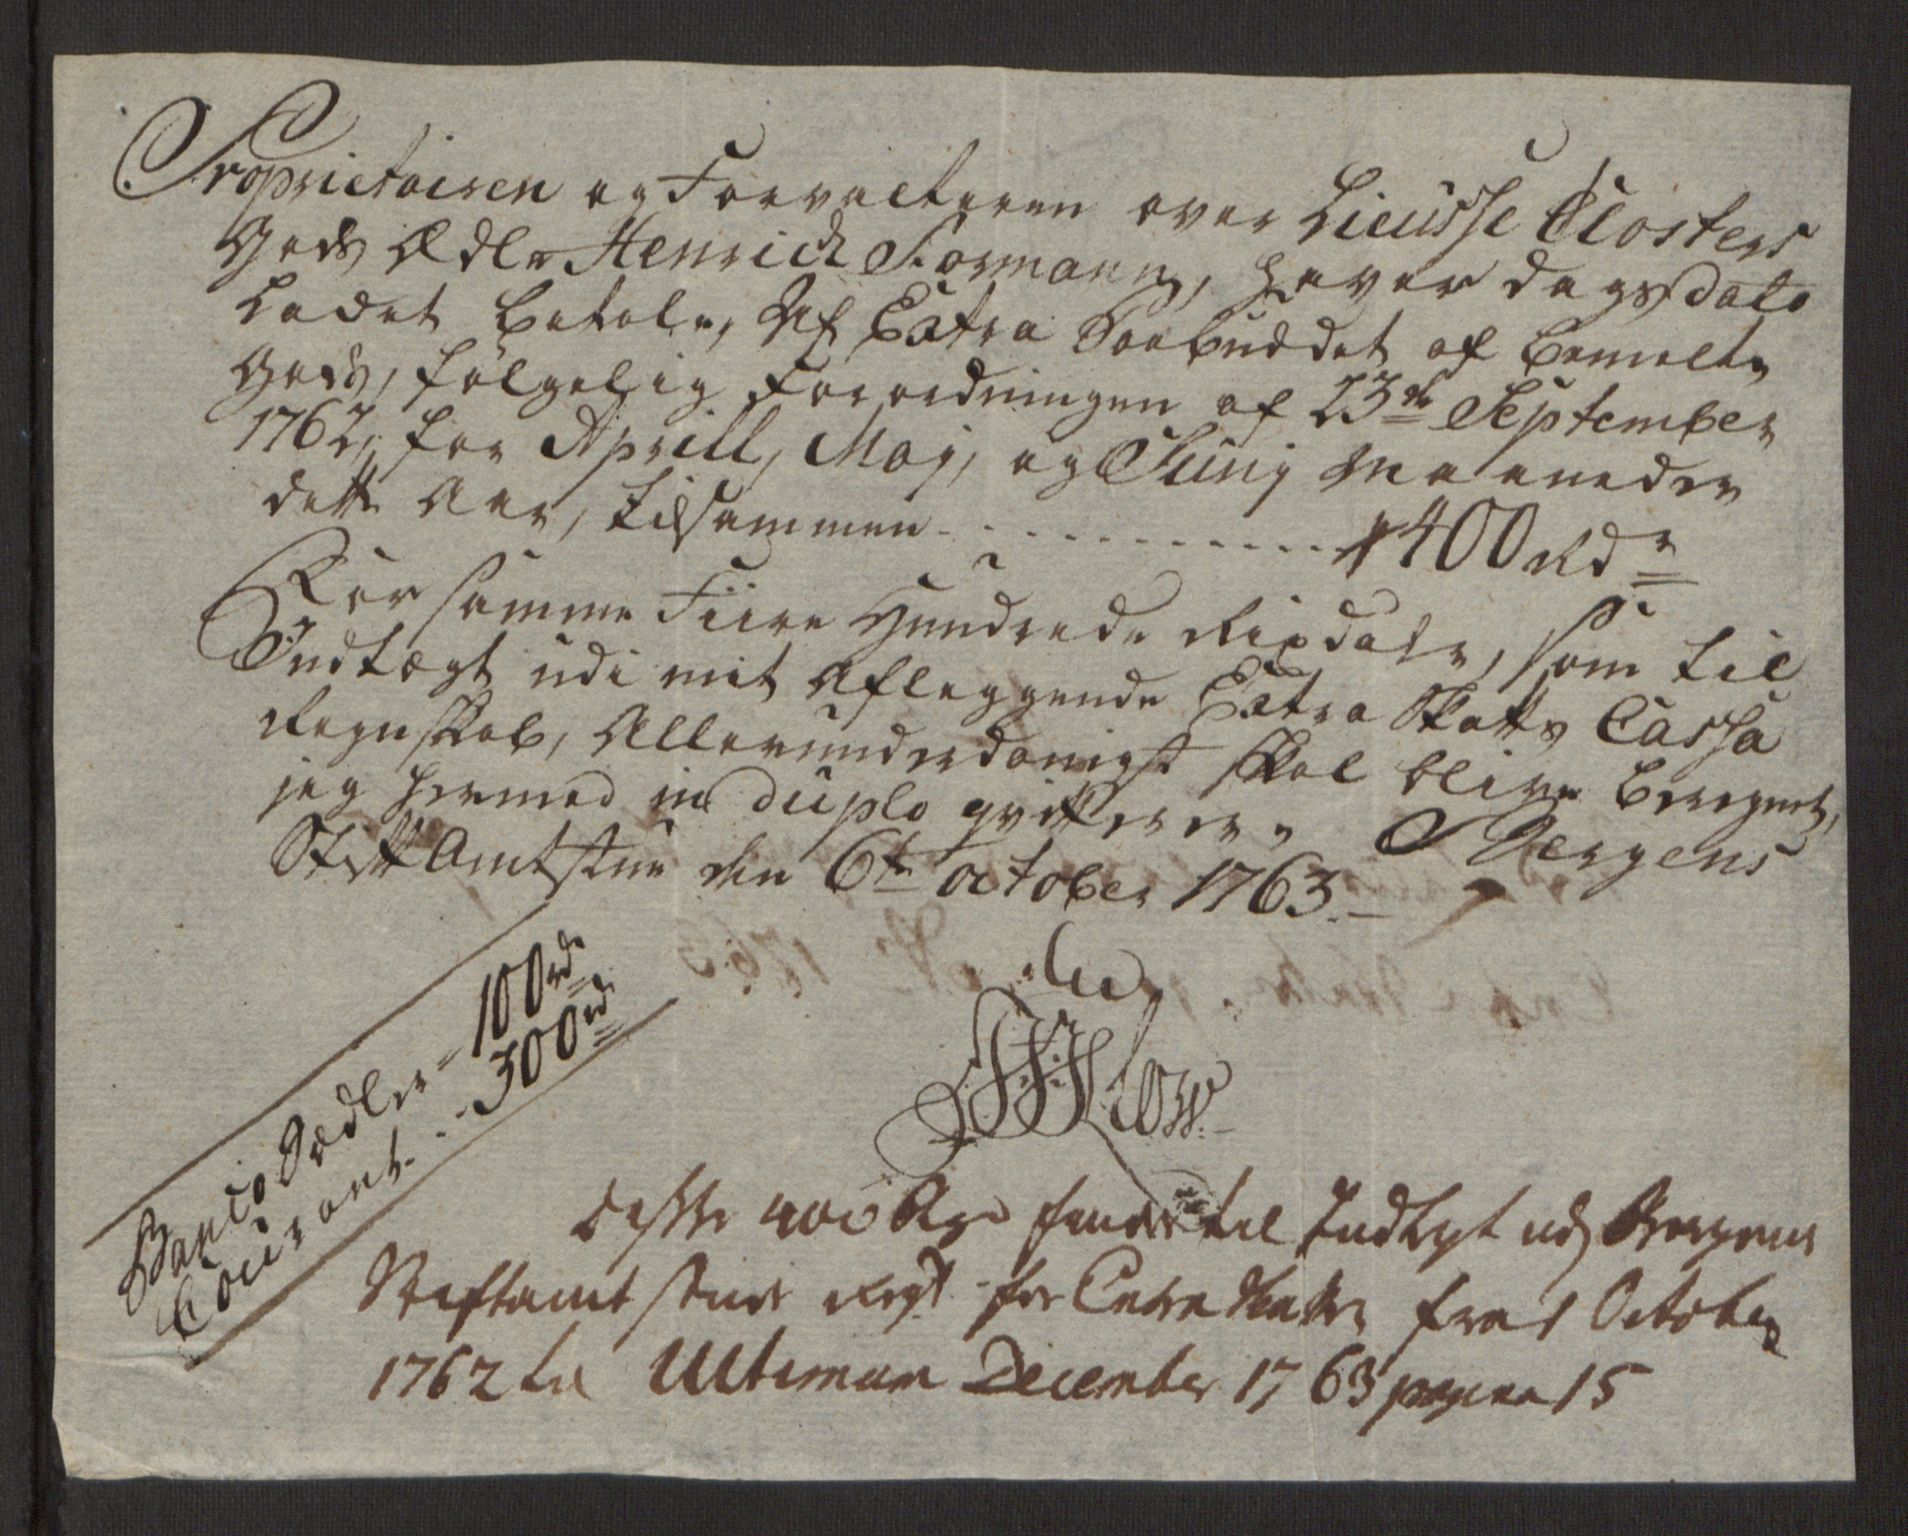 Proprietairen og Forvalteren over Lieusse Closters
Gods Ædle Henrich Formann, haver dags dato
Ladet betale, Af Extra Paabuddet af bemelte
Gods, følgelig Forordningen af 23de September
1762, for Aprill, Maj, og Junij Maaneder
dette Aar, tilsammen - - - - 400 Rdr
For samme Fiire Hundrede Rixdaler, som til
Indtægt udi mit aflæggende Extra Skatts Cassa
Regnskab, Allerunderdanigst skal blive beregnet,
jeg hermed in duplo qvitterer. Bergens
Stift Amtstue den 6te October 1763.
Banco Sædler - 100 rd
Courant - 300 rd
Disse 400 Rdr findes til Indtegt udj Bergens
Stiftamt stues Regsk for Extra Skatten fra 1 October
1762 til Ultimum December 1763 pagina 15